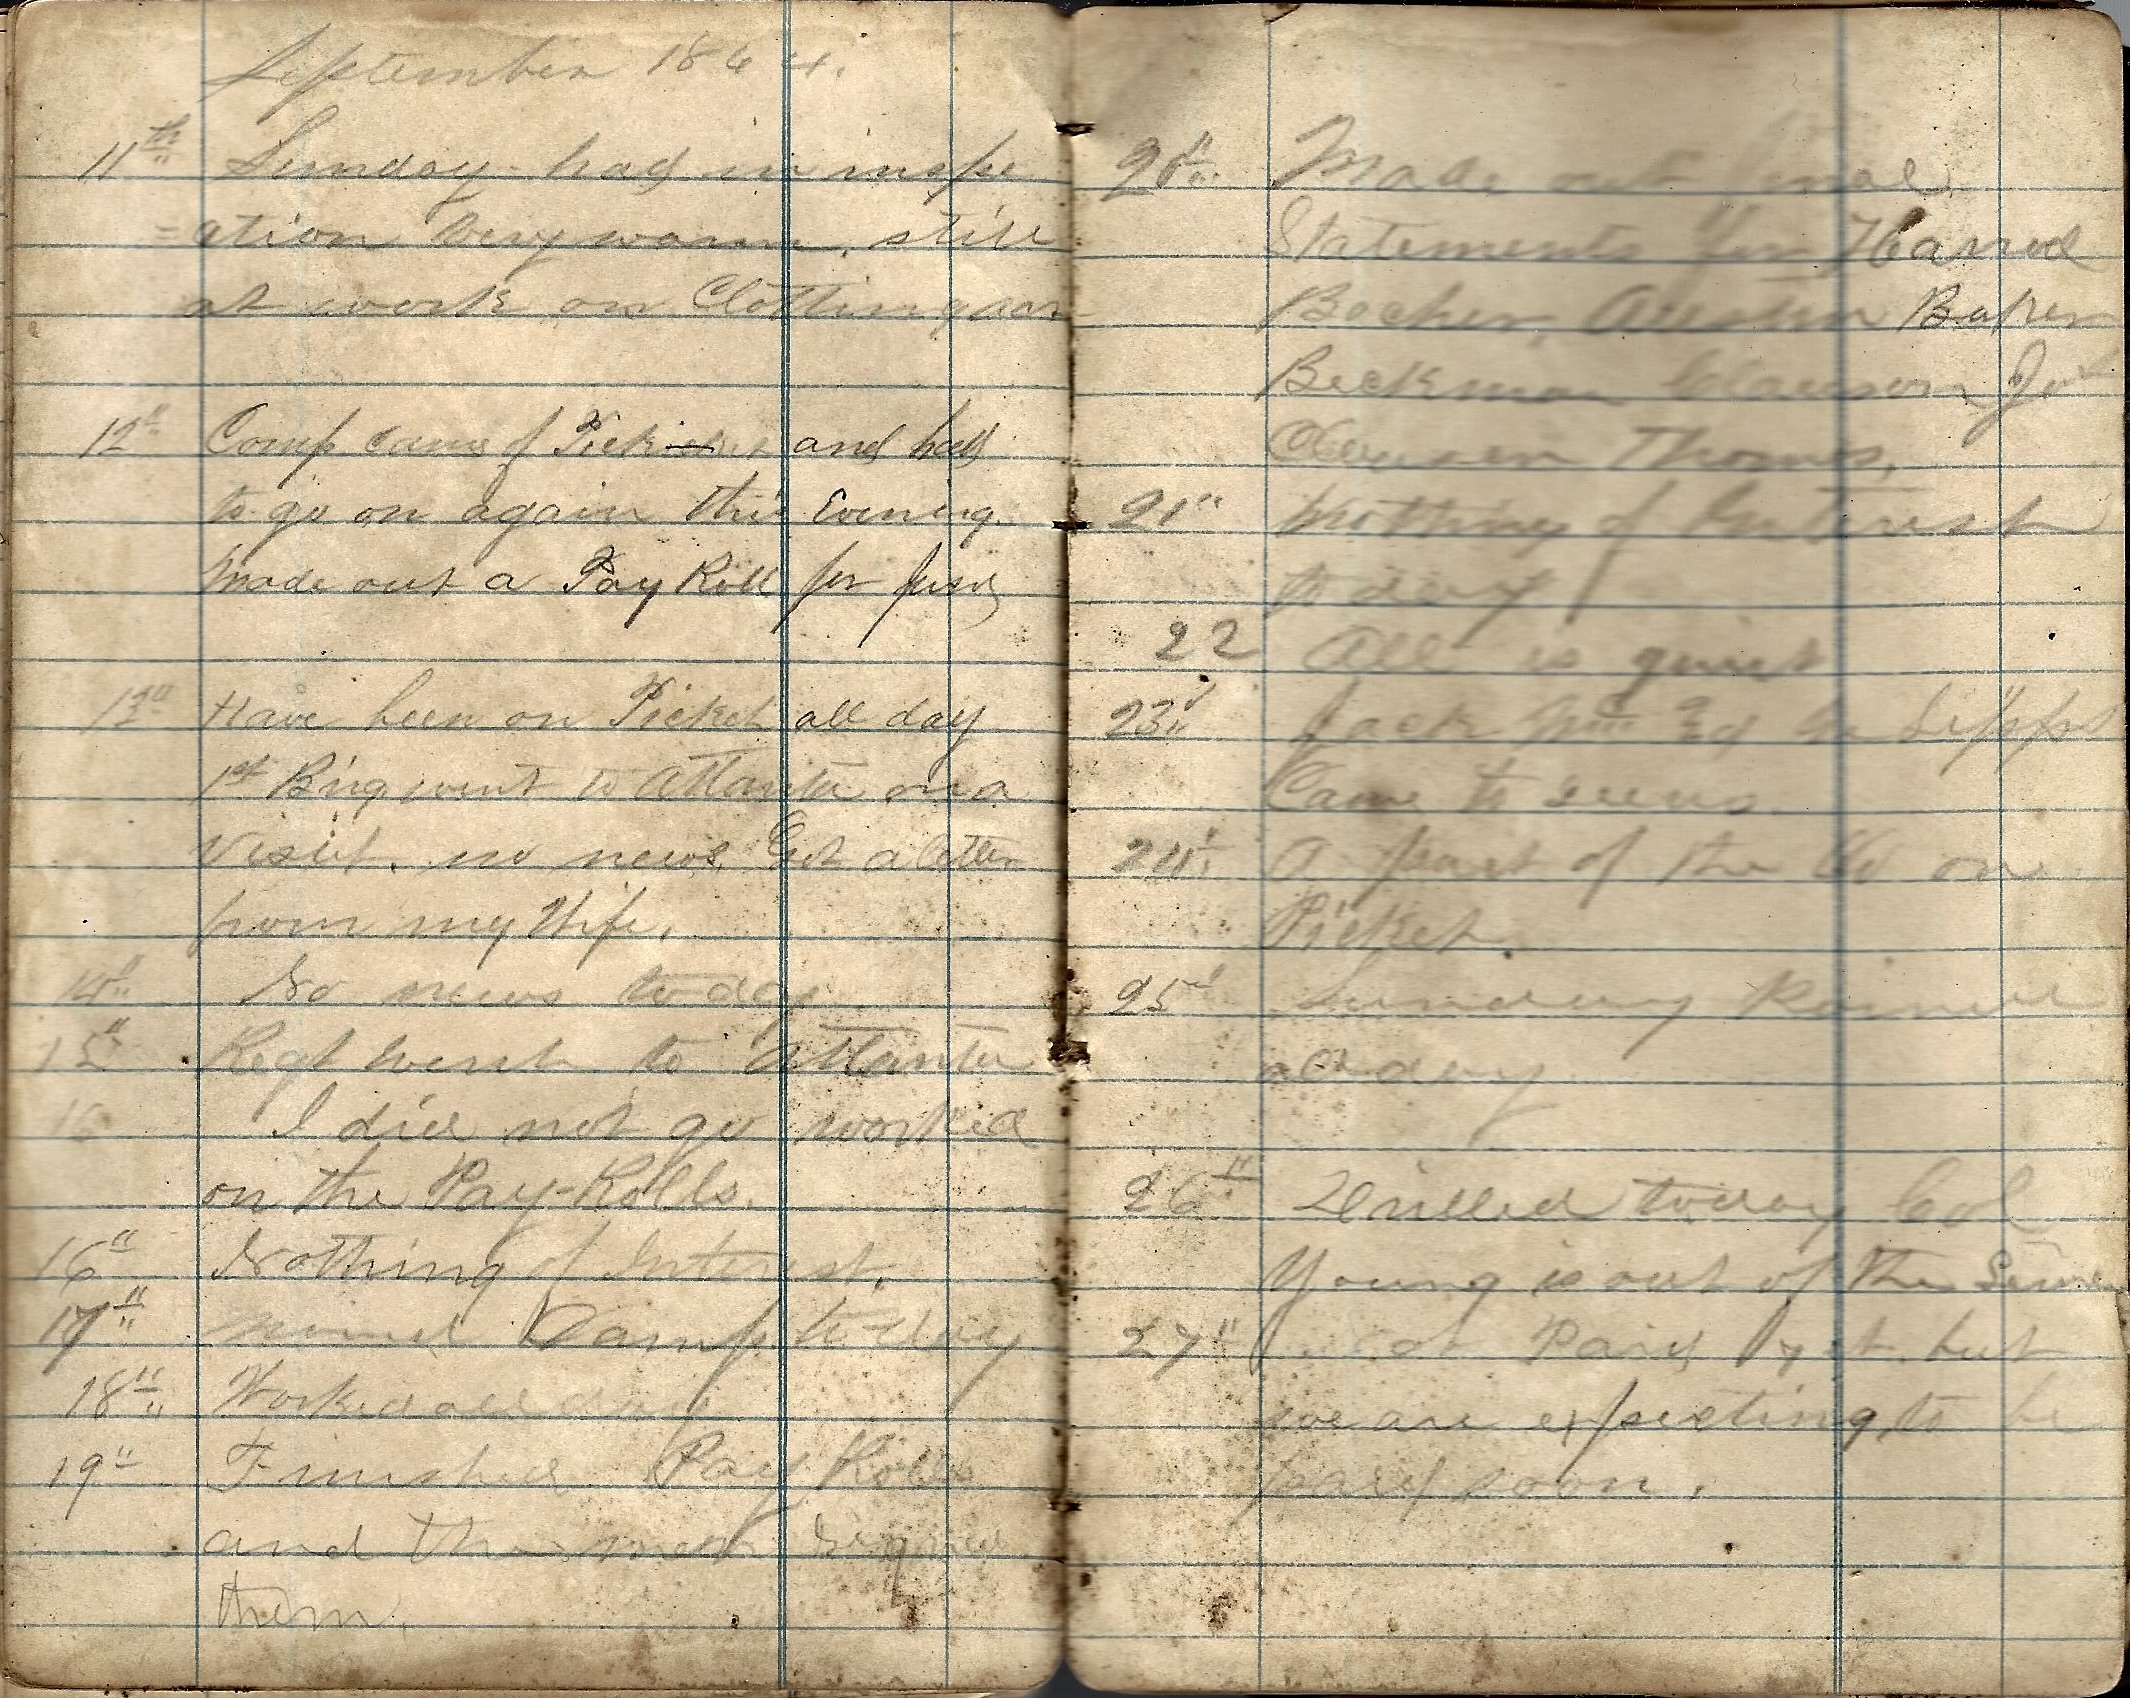 September 1864.
11th Sunday had in inspe
=ction Very warm. still
at work on Clothing
12" Comp came of Picket and had
to go on again this Evening.
made out a Pay Roll for
13" Have been on Picket all day
1st Brig went to Atlanta on a
visit. no news. Got a letter
from my Wife.
14" No news today
15" Regt went to Atlanta
16 I did not go worked
on the Pay-Rolls.
16" Nothing of Interest.
17" moved Camp to-day
18" Worked all day
19" Finished Pay Rolls
and the men signed
them.
20" Made out final
Statements for Harrod
Bocher, Austin Baker
Beckman Clawson
Clawson Thomas,
21" Nothing of Interest
to day
22 All is quiet
23"
Came to
24" A part of the Co on
Picket.
25" Sunday
all day
26" Drilled today Col
Young is out of the
27" Paid yet. but
we are expecting to be
paid soon.